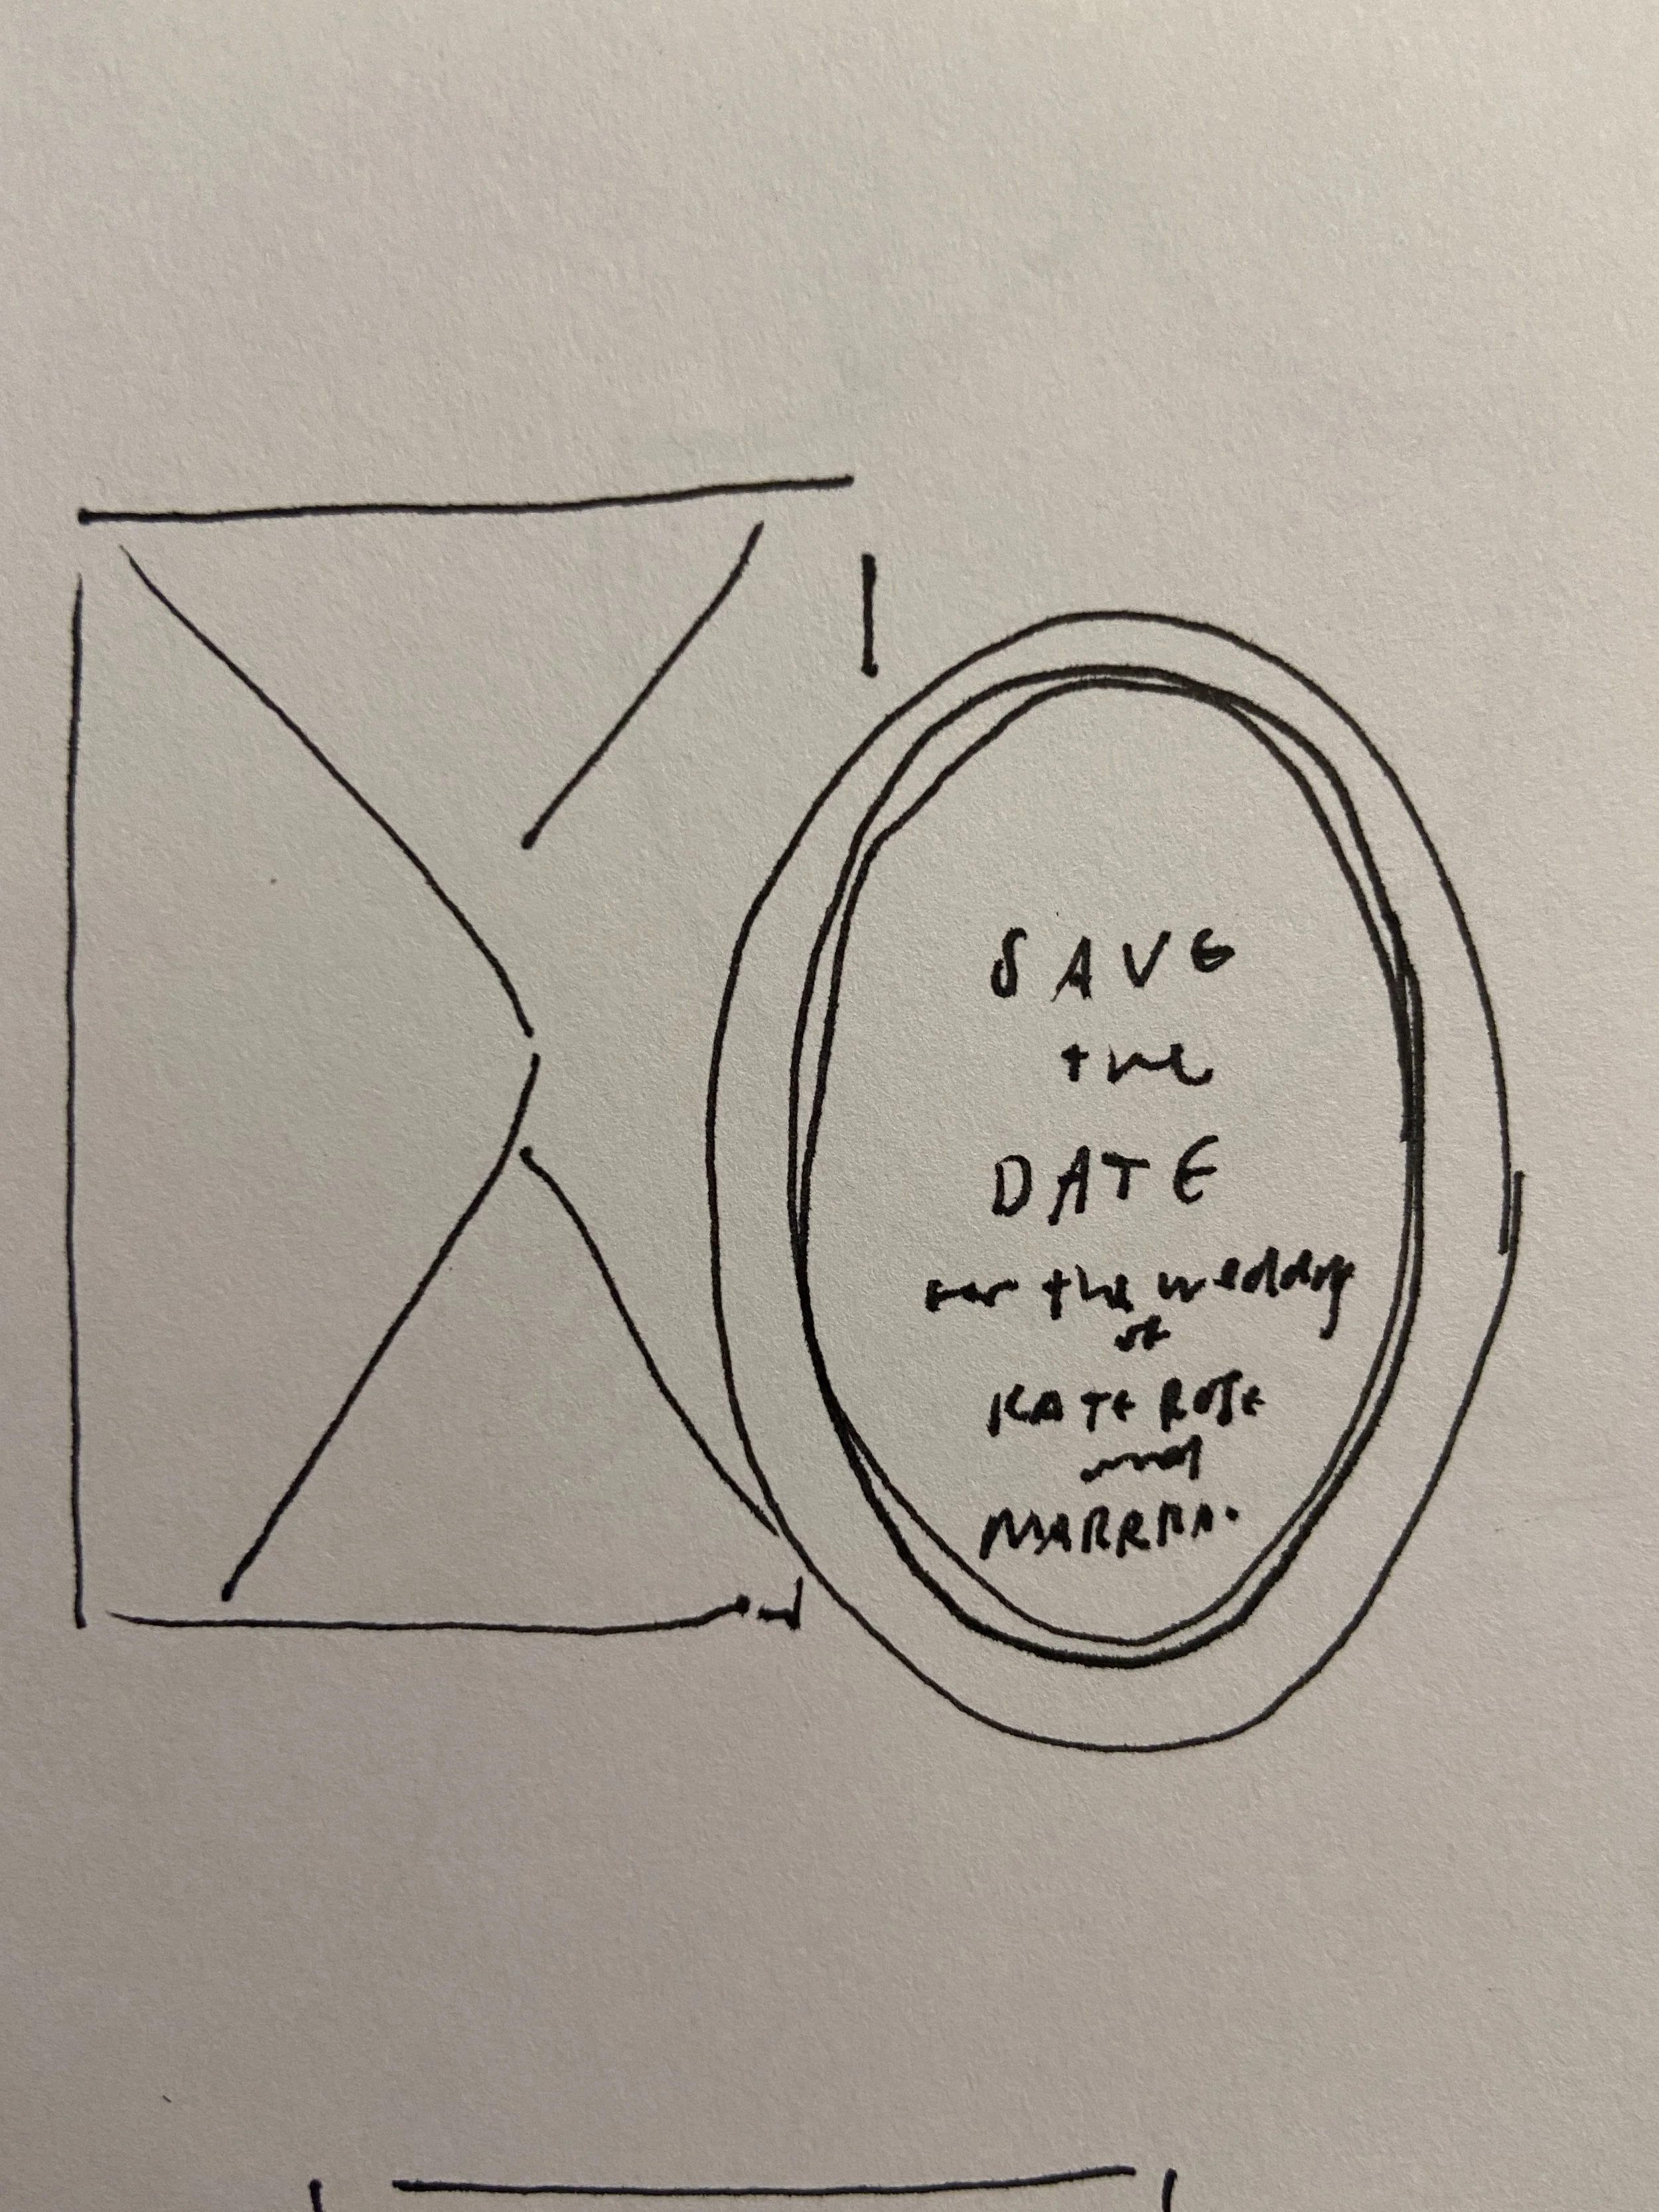 SAVE
the
DATE
for the wedding
of
KATE ROSE
and